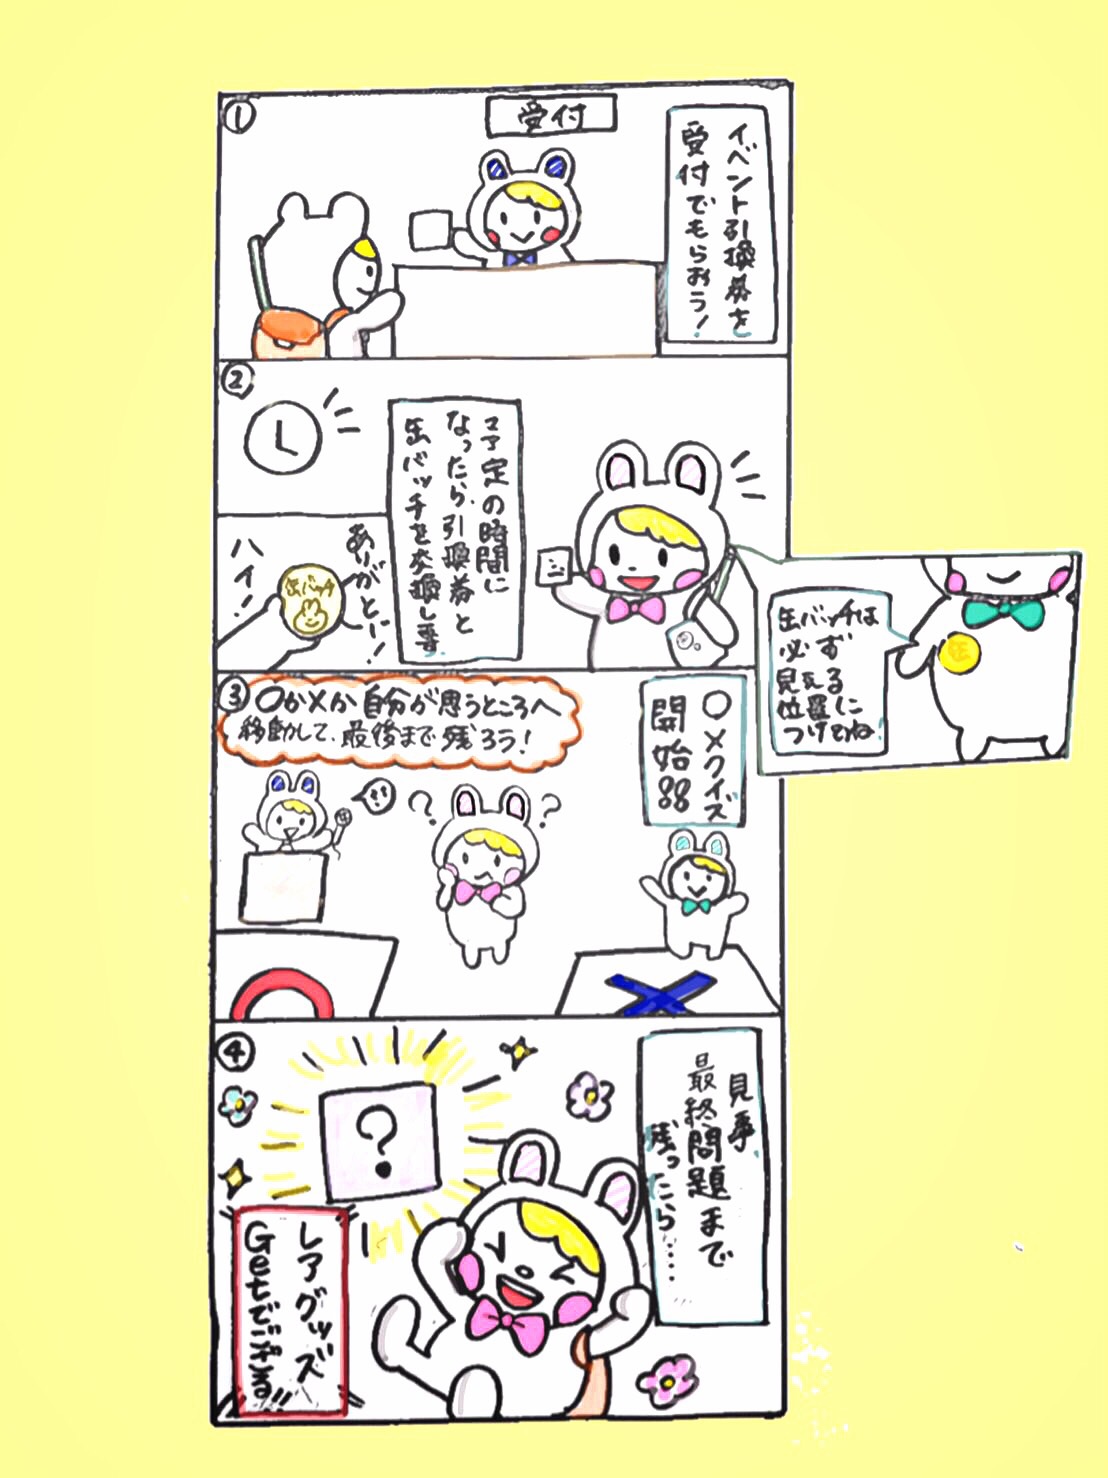 ①
受付
イベント引換券を
受付でもらおう！
②
予定の時間に
なったら、引換券と
缶バッチを交換し〼
ありがとー！
缶バッチ
ハイ！
缶バッチは
必ず
見える
位置に
つけてね
缶
③
〇か×か自分が思うところへ
移動して、最後まで残ろう！
〇×クイズ
開始!!
?
?
④
見事
最終問題まで
残ったら……
?
レアグッズ
Getでござる!!